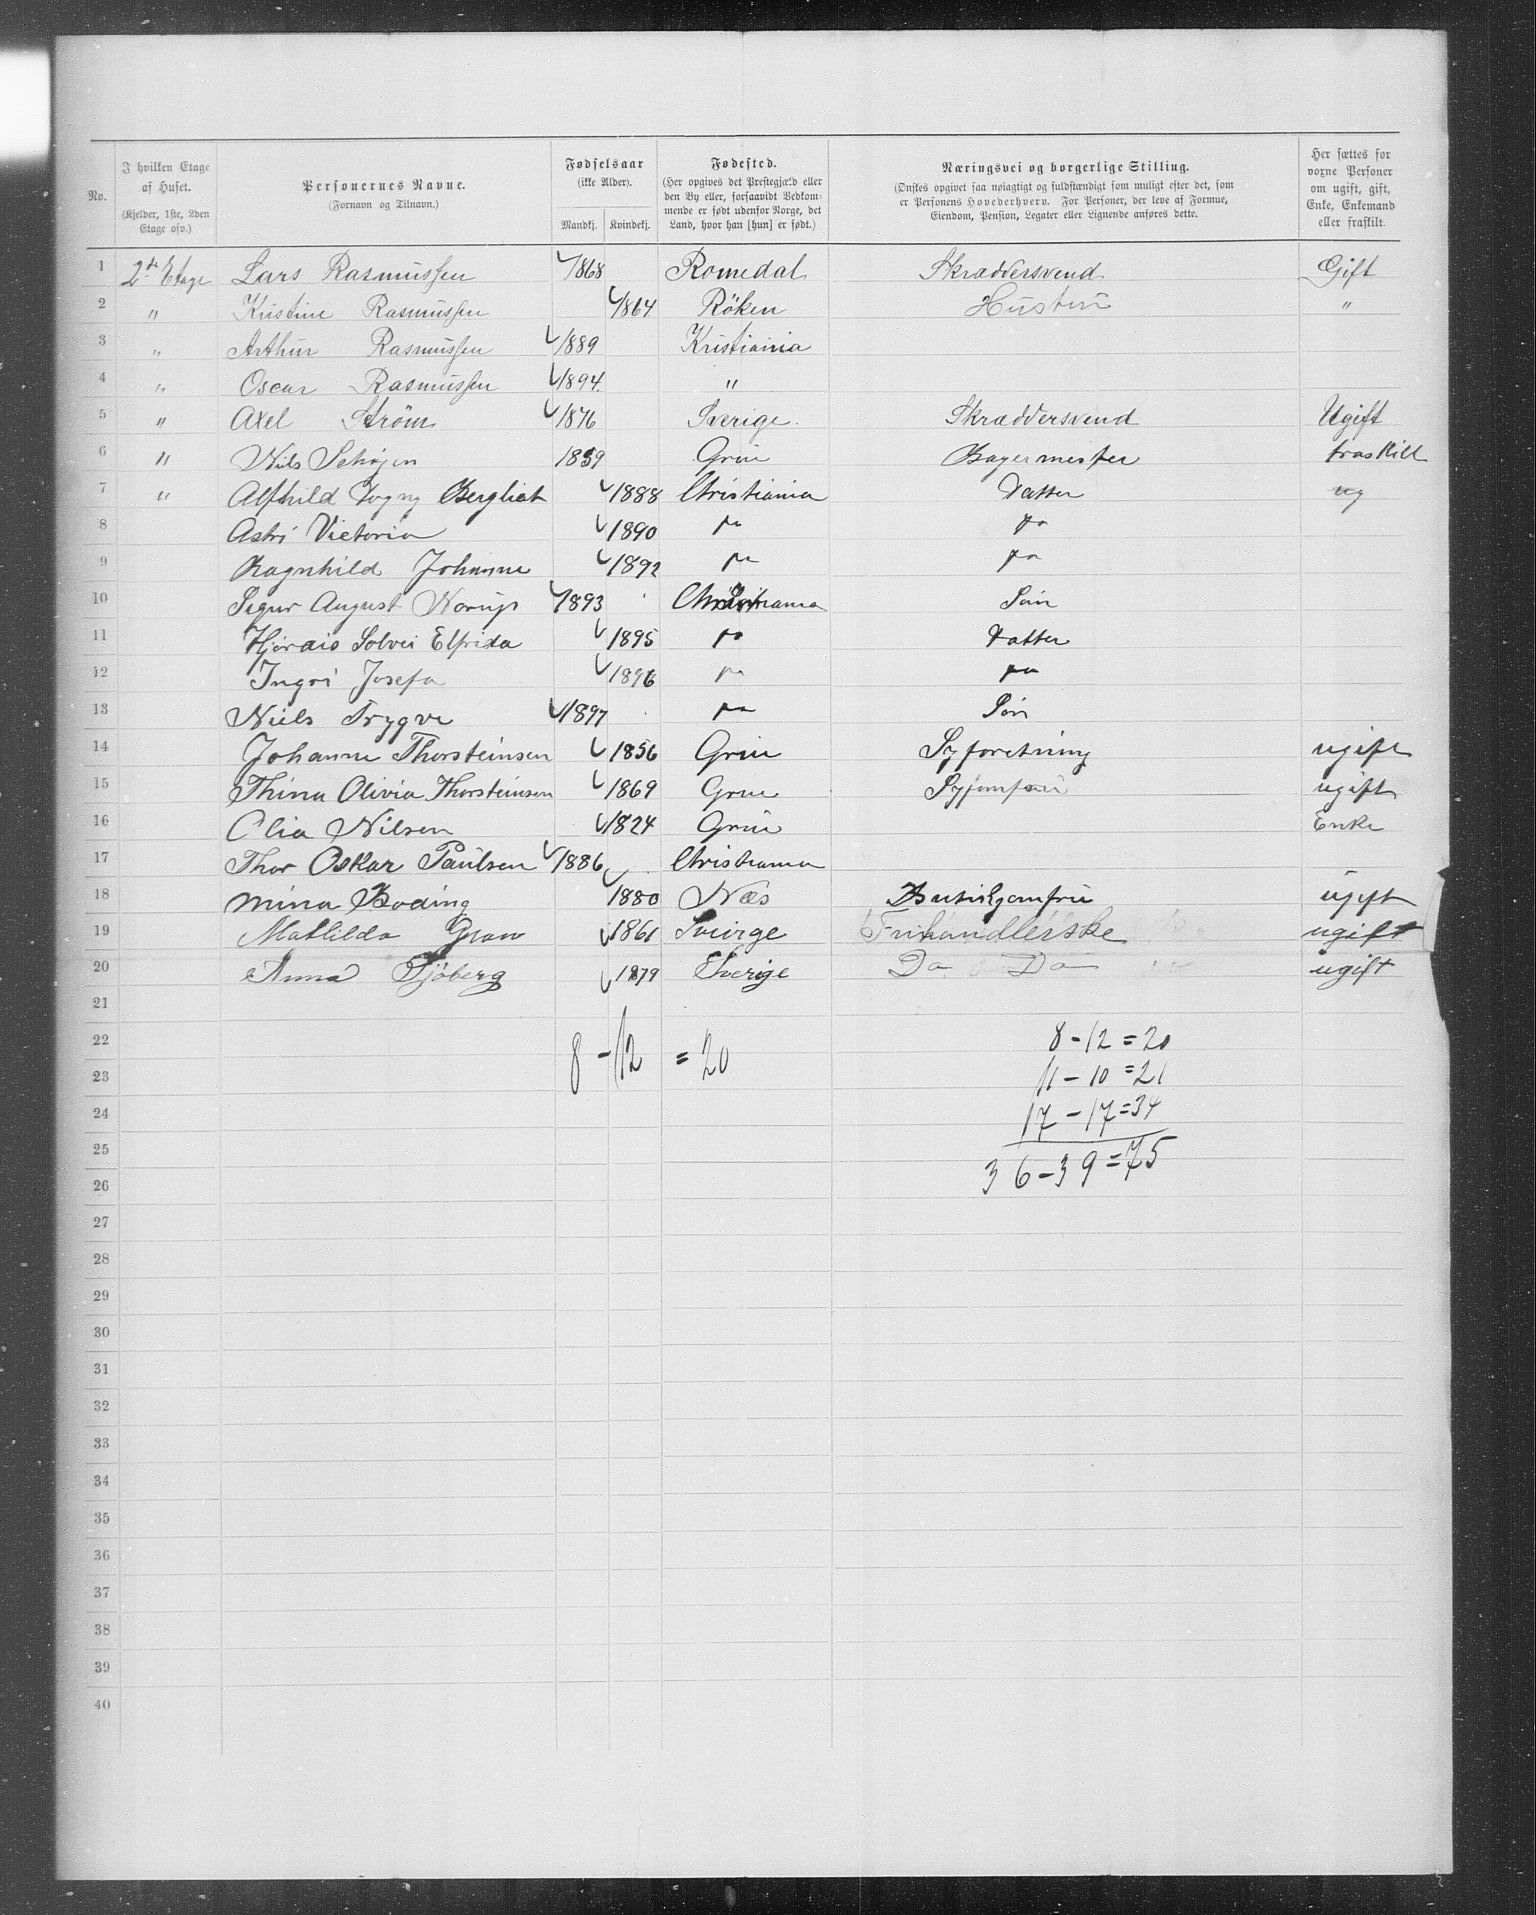 No. | I hvilken Etage af Huset. (Kjelder, 1ste, 2den Etage osv.) | Personernes Navne. (Fornavn og Tilnavn.) | Fødselsaar (ikke Alder). Mandkj. Kvindekj. | Fødested. (Her opgives det Prestegjæld eller den By eller, forsaavidt Vedkommende er født udenfor Norge, det Land, hvor han [hun] er født.) | Næringsvei og borgerlige Stilling. (Ønskes opgivet saa nøiagtigt og fuldstændigt som muligt efter det, som er Personens Hovederhverv. For Personer, der leve af Formue, Eiendom, Pension, Legater eller Lignende anføres dette. | Her sættes for voxne Personer om ugift, gift, Enke, Enkemand eller fraskilt.
1 2de Etage Lars Rasmussen 1868 Romedal Skræddersvend Gift
2 " Kristine Rasmussen 1864 Röken Hustru "
3 " Arthur Rasmussen 1889 Kristiania
4 " Oscar Rasmussen 1894. "
5 " Axel Ström 1876 Sverige. Skræddersvend Ugift
6 " Nils 1859 Grue Bagermester fraskilt
7 " Alfhild Dagny Bergliot 1888 Christiania Datter ug
8 Astri Victoria 1890
9 Ragnhild Johanne 1892
10 Sigur August Norup 1893 Christiania Søn
11 Hjørdis Solvei Elfrida 1895 Datter
12 Ingri Josefa 1896
13 Niels Trygve 1897 Søn
14 Johanne Thorsteinsen 1856 Grue Syforetning ugift
15 Thina Olivia Thorsteinsen 1869 Grue Syjomfru ugift
16 Olia Nilsen 1824 Grue Enke
17 Thor Oskar Paulsen 1886 Christiania
18 Mina Boding 1880 Næs Butikjomfru ugift
19 Mathilda Gran 1861 Sveirge Fruhandlerske ugift
20 Anna Sjöberg 1879 Sverige Do Do ugift
21
22 8 - 12 = 20 8 - 12 = 20
23 11 - 10 = 21
24 17 - 17 = 34
25 36 - 39 = 75
26
27
28
29
30
31
32
33
34
35
36
37
38
39
40